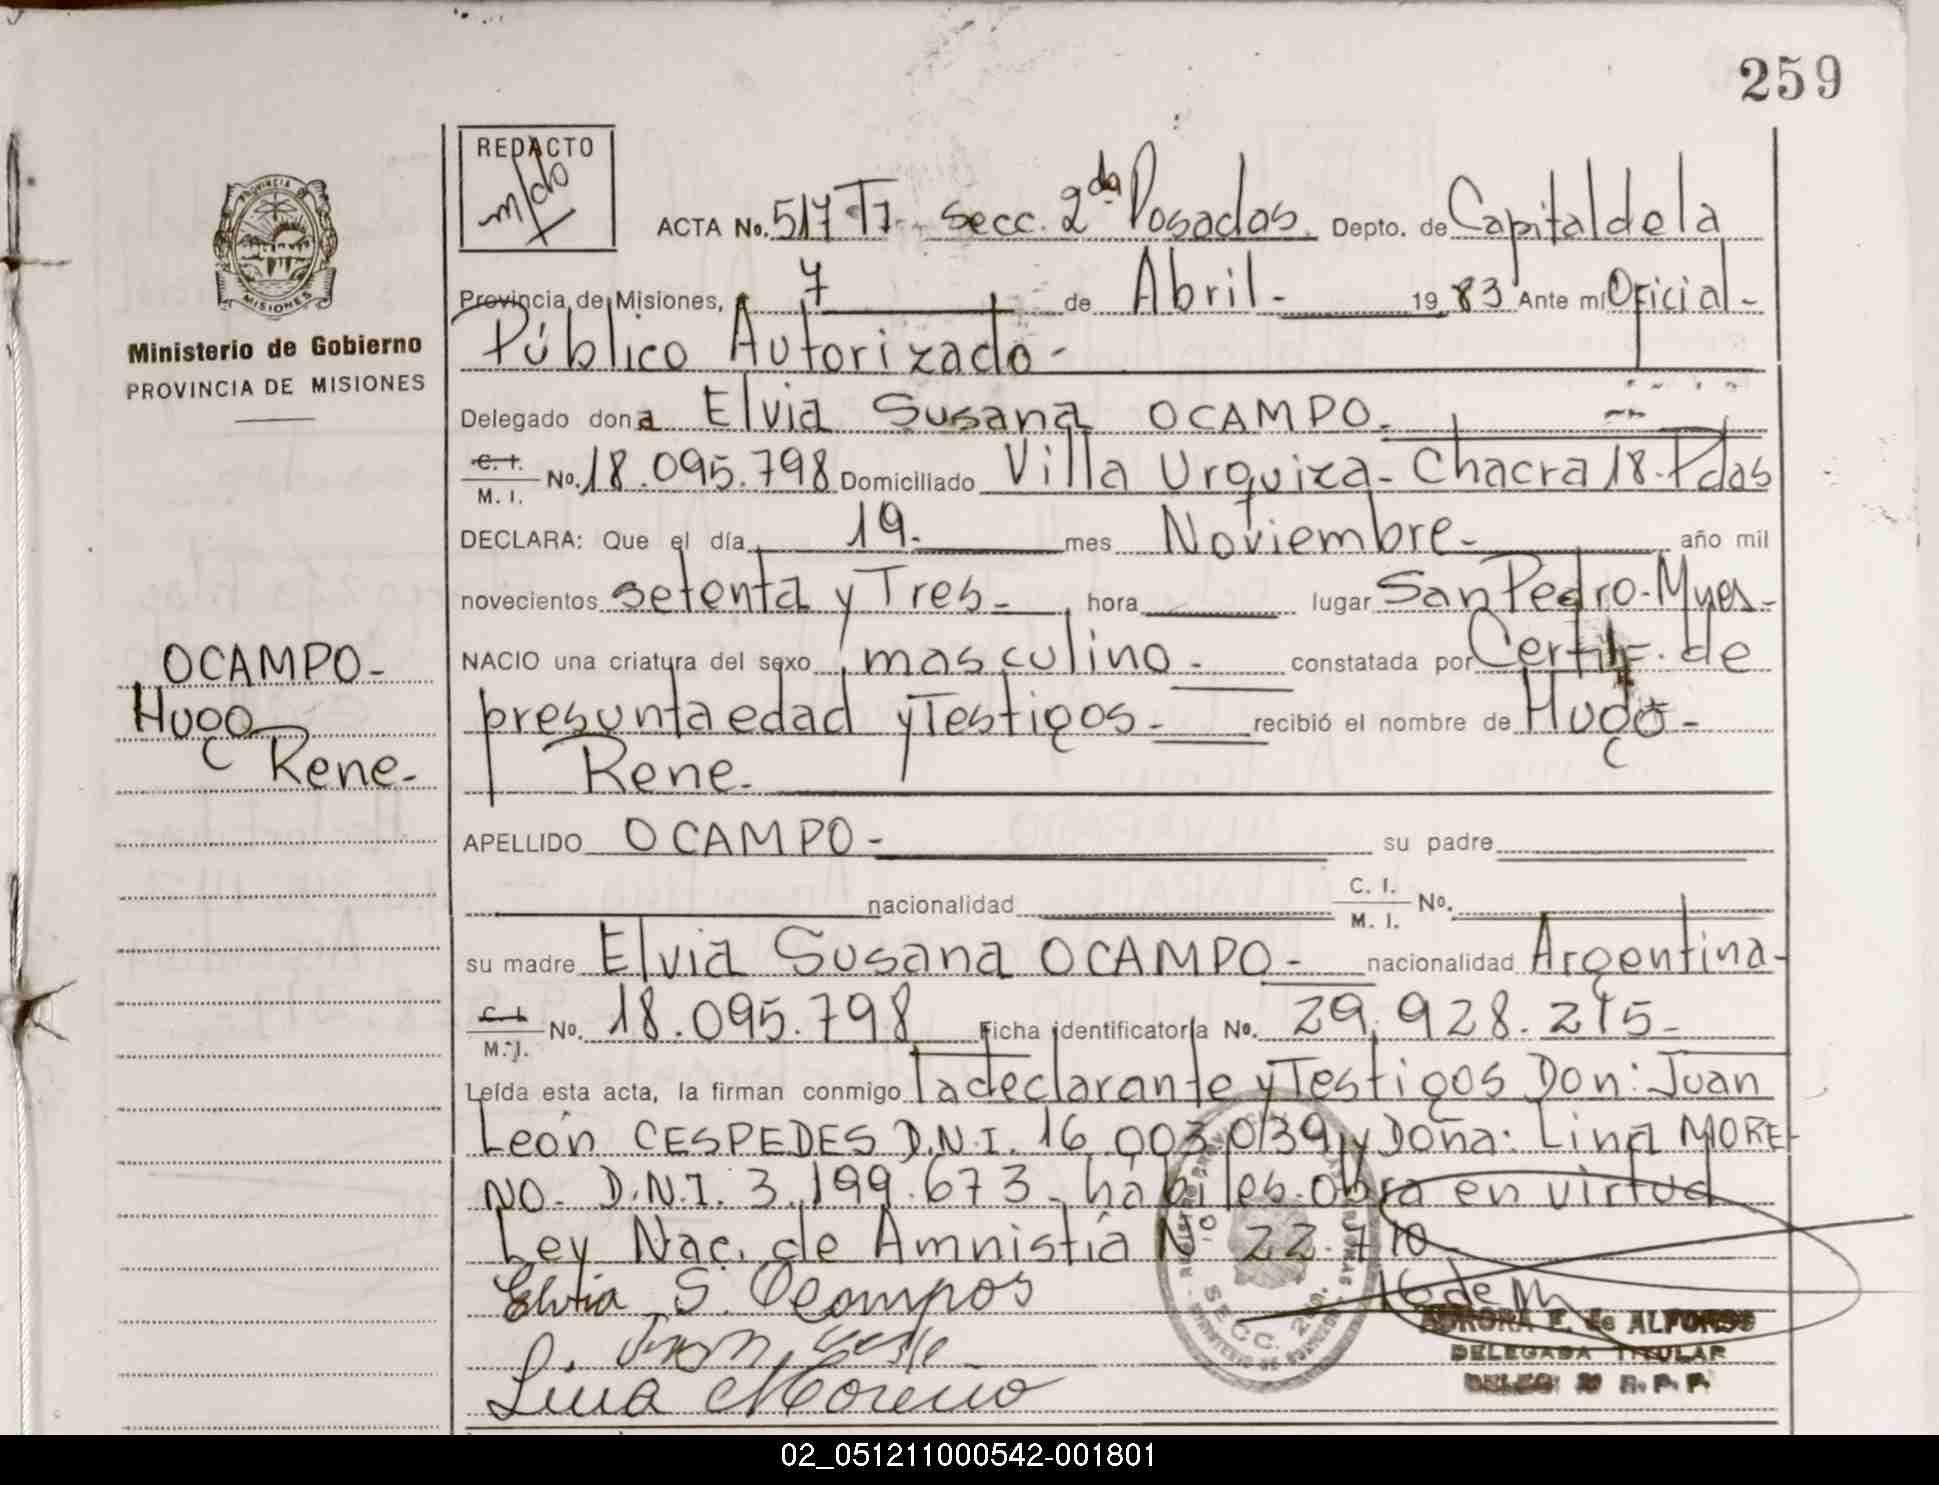 259
REDACTO
PROVINCIA DE
MISIONES
Ministerio de Gobierno
PROVINCIA DE MISIONES
ACTA No. 517 TI - secc. 2da Posadas. Depto. de Capital de la
Provincia de Misiones, a 7 de Abril - 1983 Ante mí Oficial -
Público Autorizado -
Delegado dona Elvia Susana OCAMPO.
C. I. M. I. No. 18.095.798 Domiciliado Villa Urquiza - Chacra 18. Pdas
DECLARA: Que el día 19. mes Noviembre - año mil
novecientos setenta y Tres - hora lugar San Pedro - Mnes -
NACIO una criatura del sexo masculino - constatada por Certif. de
presunta edad y Testigos - recibió el nombre de Hugo -
Rene -
OCAMPO -
Hugo
Rene -
APELLIDO OCAMPO - su padre
nacionalidad C. I. M. I. No.
su madre Elvia Susana OCAMPO - nacionalidad Argentina -
C. I. M. I. No. 18.095.798 Ficha identificatoria No. 29.928.215 -
Leída esta acta, la firman conmigo la declarante y Testigos Don: Juan
León CESPEDES D.N.I. 16.003.039 y Doña: Lina MORE
NO - D.N.I. 3.199.673 - hábiles - obra en virtud
Ley Nac. de Amnistía Nº 22.710 -
Elvia S. Ocampos
Lina Moreno
SECC. 2da.
AURORA E. de ALFONSO
DELEGADA TITULAR
02_051211000542-001801